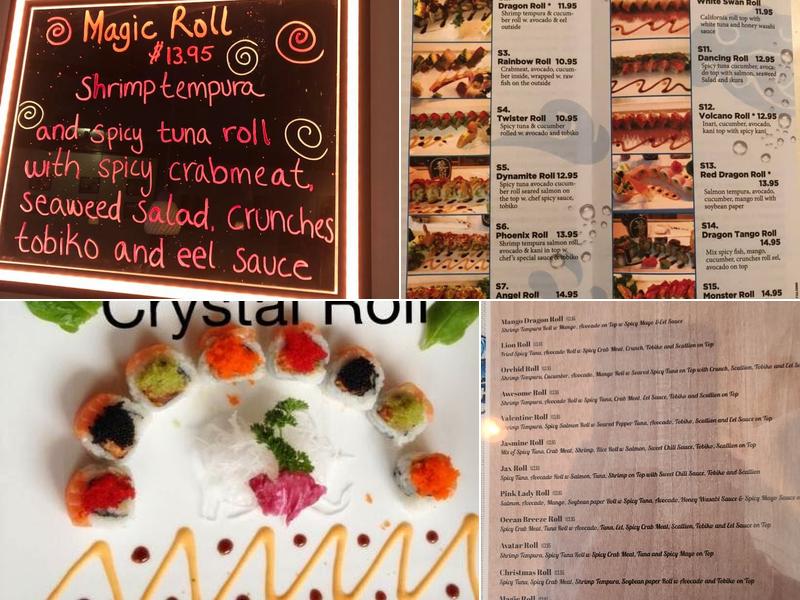 Magic Roll
$13.95
Shrimp tempura
and spicy tuna roll
with spicy crabmeat,
seaweed salad, Crunches
tobiko and eel sauce
Dragon Roll * 11.95
Shrimp tempura & cucum-
ber roll w. avocado & eel
outside
S3.
Rainbow Roll 10.95
Crabmeat, avocado, cucum-
ber inside, wrapped w. raw
fish on the outside
S4.
Twister Roll 10.95
Spicy tuna & cucumber
rolled w. avocado and tobiko
S5.
Dynamite Roll 12.95
Spicy tuna avocado cucum-
ber roll seared salmon on
the top w. chef spicy sauce,
tobiko
S6.
Phoenix Roll 13.95
Shrimp tempura salmon roll,
avocado & kani in top w.
chef's special sauce & tobiko
S7.
Angel Roll 14.95
White Swan Roll
11.95
California roll top with
white tuna and honey wasabi
sauce
S11.
Dancing Roll 12.95
Spicy tuna cucumber, avoca-
do top with salmon, seaweed
Salad and ikura
S12.
Volcano Roll * 12.95
Inari, cucumber, avocado,
kani top with spicy kani
S13.
Red Dragon Roll *
13.95
Salmon tempura, avocado,
cucumber, mango roll with
soybean paper
S14.
Dragon Tango Roll
14.95
Mix spicy fish, mango,
cucumber, crunches roll eel,
avocado on top
S15.
Monster Roll 14.95
Crystal Roll
Mango Dragon Roll
Shrimp Tempura Roll w Mango, Avocado on Top w Spicy Mayo & Eel Sauce
Lion Roll
Fried Spicy Tuna, Avocado Roll w Spicy Crab Meat, Crunch, Tobiko and Scallion on Top
Orchid Roll
Shrimp Tempura, Cucumber, Avocado, Mango Roll w Seared Spicy Tuna on Top with Crunch, Scallion, Tobiko and Eel
Awesome Roll
Shrimp Tempura, Avocado Roll w Spicy Tuna, Crab Meat, Eel Sauce, Tobiko and Scallion on Top
Valentine Roll
Shrimp Tempura, Spicy Salmon Roll w Seared Pepper Tuna, Avocado, Tobiko, Scallion and Eel Sauce on Top
Jasmine Roll
Mix of Spicy Tuna, Crab Meat, Shrimp, Rice Roll w Salmon, Sweet Chili Sauce, Tobiko, Scallion on Top
Jax Roll
Spicy Tuna, Avocado Roll w Salmon, Tuna, Shrimp on Top with Sweet Chili Sauce, Tobiko and Scallion
Pink Lady Roll
Salmon, Avocado, Mango, Soybean paper Roll w Spicy Tuna, Avocado, Honey Wasabi Sauce & Spicy Mayo Sauce
Ocean Breeze Roll
Spicy Crab Meat, Tuna Roll w Avocado, Tuna, Eel, Spicy Crab Meat, Scallion, Tobiko and Eel Sauce on Top
Avatar Roll
Shrimp Tempura, Spicy Tuna Roll w Spicy Crab Meat, Tuna and Spicy Mayo on Top
Christmas Roll
Spicy Tuna, Spicy Crab Meat, Shrimp Tempura, Soybean paper Roll w Avocado and Tobiko on Top
Magic Roll